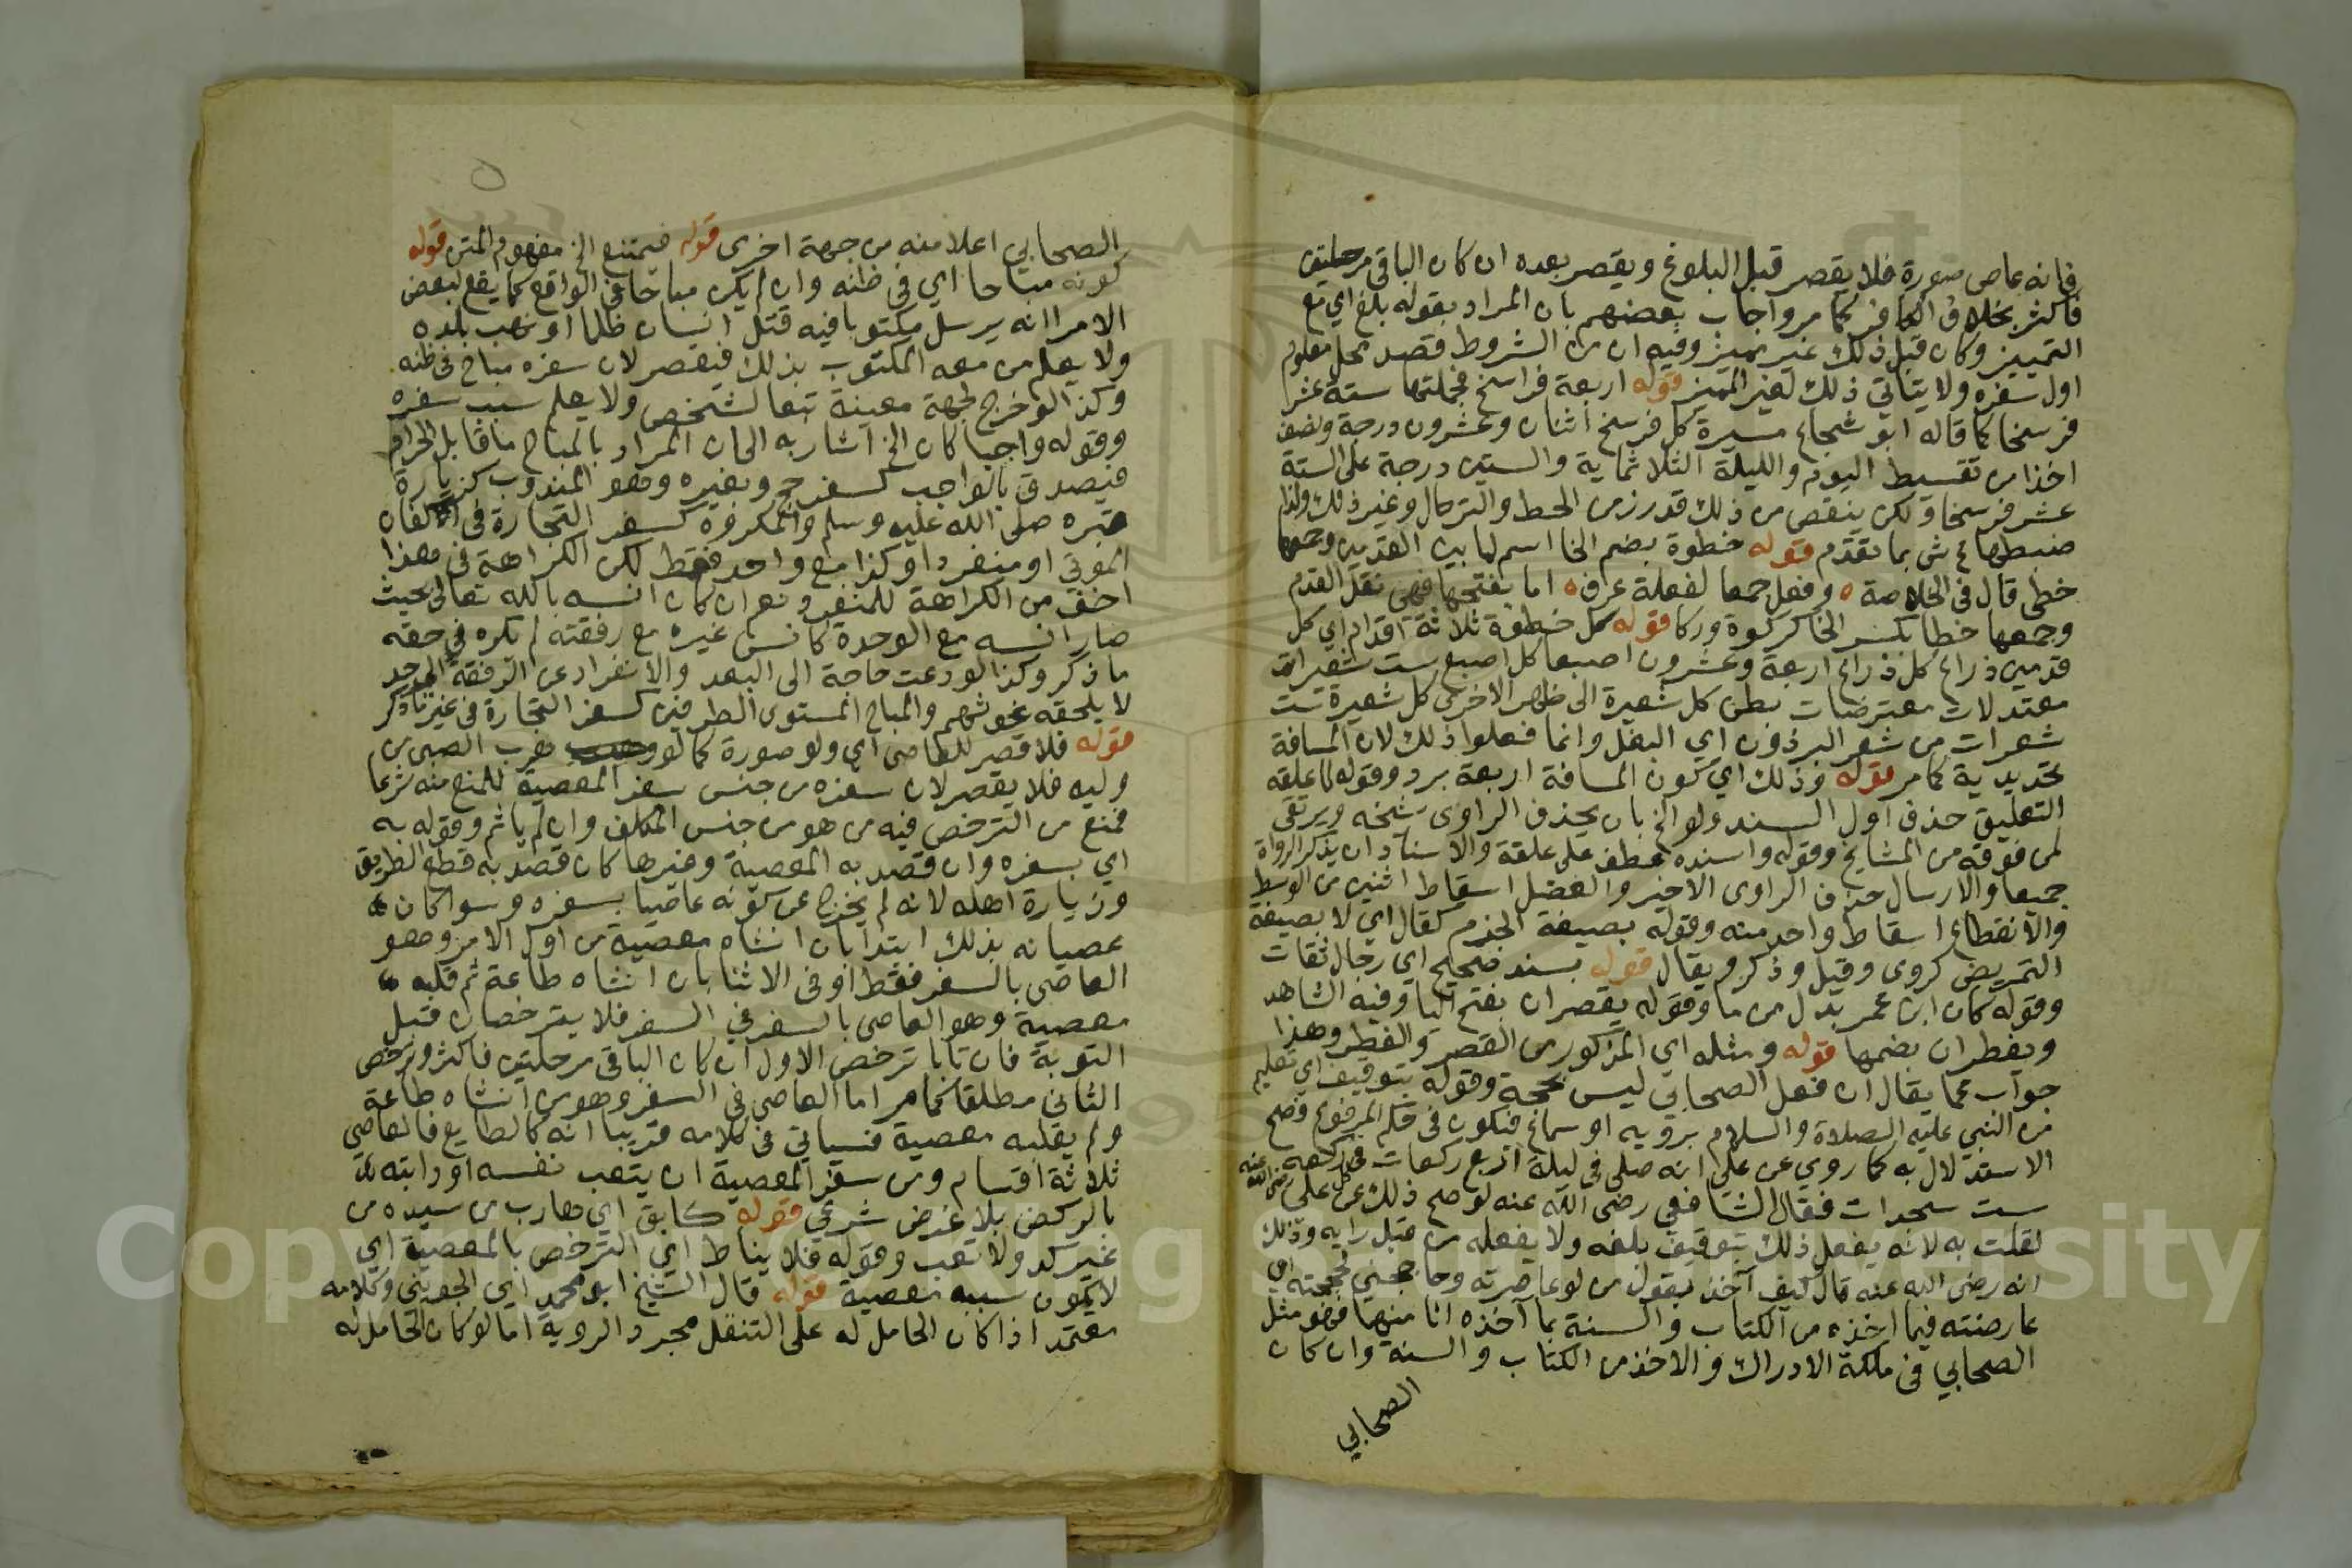 فانه عاص صورة فلا يقصر قبل البلوغ ويقصر بعده ان كان الباقي مرحلتين
فاكثر بخلاف الكافر كما مر واجاب بعضهم بان المراد بقوله بلغ اي مع
التمييز وكان قبل ذلك غير مميز وفيه ان من الشروط قصد محل معلوم
اول سفره ولا يتاتي ذلك لغير المميز قوله اربعة فراسخ فجملتها ستة عشر
فرسخا كما قاله ابو شجاع مسيرة كل فرسخ اثنان وعشرون درجة ونصف
اخذا من تقسيط اليوم والليلة الثلاثماية والستين درجة على الستة
عشر فرسخا ولكن ينقص من ذلك قدر زمن الحط والترحال وغير ذلك ولذا
ضبطها ع ش بما تقدم قوله خطوة بضم الخا اسم لما بين القدمين وجمعها
خطى قال في الخلاصة ه وفعل جمعا لفعلة عرف ه اما بفتحها فهي نقل القدم
وجمعها خطا بكسر الخا كركوة وركا قوله كل خطوة ثلاثة اقدام اي كل
قدمين ذراع كل ذراع اربعة وعشرون اصبعا كل اصبع ست شعيرات
معتدلات معترضات بطن كل شعيرة الى ظهر الاخرى كل شعيرة ست
شعرات من شعر البرذون اي البغل وانما فعلوا ذلك لان المسافة
تحديدية كما مر قوله وذلك اي كون المسافة اربعة برد وقوله لما علقه
التعليق حذف اول السند ولو الخ بان يحذف الراوى شيخه ويرتقي
لمن فوقه من المشايخ وقوله واسنده عطف على علقة والاسناد ان يذكر الرواة
جميعا والارسال حذف الراوى الاخير والعضل اسقاط اثنين من الوسط
والانقطاع اسقاط واحد منه وقوله بصيغة الجزم كقال اي لا بصيغة
التمريض كروى وقيل وذكر ويقال قوله بسند صحيح اي رجال ثقات
وقوله كان ابن عمر بدل من ما وقوله يقصران بفتح اليا وفيه الشاهد
ويفطران بضمها قوله ومثله اي المذكور من القصر والفطر وهذا
جواب عما يقال ان فعل الصحابي ليس بحجة وقوله بتوقيف اي تعليم
من النبي عليه الصلاة والسلام برويه او سماع فيكون في حكم المرفوع فصح
الاستدلال به كما روي عن علي انه صلى في ليلة اربع ركعات في كل ركعة
ست سجدات فقال الشافعي رضى الله عنه لو صح ذلك عن علي رضي الله عنه
لقلت به لانه يفعل ذلك بتوقيف بلغه ولا يفعله من قبل رايه وذلك
انه رضى الله عنه قال كيف آخذ بقول من لو عاصرته وحاججني لحججته اي
عارضته فيما اخذه من الكتاب والسنة بما آخذه انا منهما فهو مثل
الصحابي في ملكة الادراك والاخذ من الكتاب والسنة وان كان
الصحابي
الصحابي اعلا منه من جهة اخرى قوله فيمتنع الخ مفهوم المتن قوله
كونه مباحا اي في ظنه وان لم يكن مباحا في الواقع كما يقع لبعض
الامرا انه يرسل مكتوبا فيه قتل انسان ظلما او نهب بلده
ولا يعلم من معه المكتوب بذلك فيقصر لان سفره مباح في ظنه
وكذا لو خرج لجهة معينة تبعا لشخص ولا يعلم سبب سفره
وقوله واجبا كان الخ اشار به الى ان المراد بالمباح ما قابل الحرام
فيصدق بالواجب كسفر حج وبغيره وهو المندوب كزيارة
قبره صلى الله عليه وسلم والمكروه كسفر التجارة في اكفان
الموتي او منفردا وكذا مع واحد فقط لكن الكراهة في هذا
اخف من الكراهة للمنفرد نعم ان كان انسه بالله تعالى بحيث
صار انسه مع الوحدة كانس غيره مع رفقته لم يكره في حقه
ما ذكر وكذا لو دعت حاجة الى البعد والانفراد عن الرفقة الى حد
لا يلحقه غوثهم والمباح المستوى الطرفين كسفر التجارة في غير ما ذكر
قوله فلا قصر للعاصى اي ولو صورة كما لو هرب الصبي من
وليه فلا يقصر لان سفره من جنس سفر المعصية للمنع منه شرعا
فمنع من الترخص فيه من هو من جنس المكلف وان لم ياثم وقوله به
اي بسفره وان قصد به المعصية وغيرها كان قصد به قطع الطريق
وزيارة اهله لانه لم يخرج عن كونه عاصيا بسفره وسوا كان
عصيانه بذلك ابتدا بان انشاه معصية من اول الامر وهو
العاصي بالسفر فقط او في الاثنا بان انشاه طاعة ثم قلبه
معصية وهو العاصى بالسفر في السفر فلا يترخصان قبل
التوبة فان تابا ترخص الاول ان كان الباقي مرحلتين فاكثر وترخص
الثاني مطلقا كما مر اما العاصي في السفر وهو من انشاه طاعة
ولم يقلبه معصية فسياتي في كلامه قريبا انه كالطايع فالعاصي
ثلاثة اقسام ومن سفر المعصية ان يتعب نفسه او دابته
بالركض بلا غرض شرعي قوله كابق اي هارب من سيده من
غير كد ولا تعب وقوله فلا يناط اي الترخص بالمعصية اي
لا يكون سببه معصية قوله قال الشيخ ابو محمد اي الجويني وكلامه
معتمد اذا كان الحامل له على التنقل مجرد الروية اما لو كان الحامل له